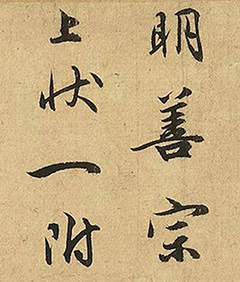 明善宗
上状一附